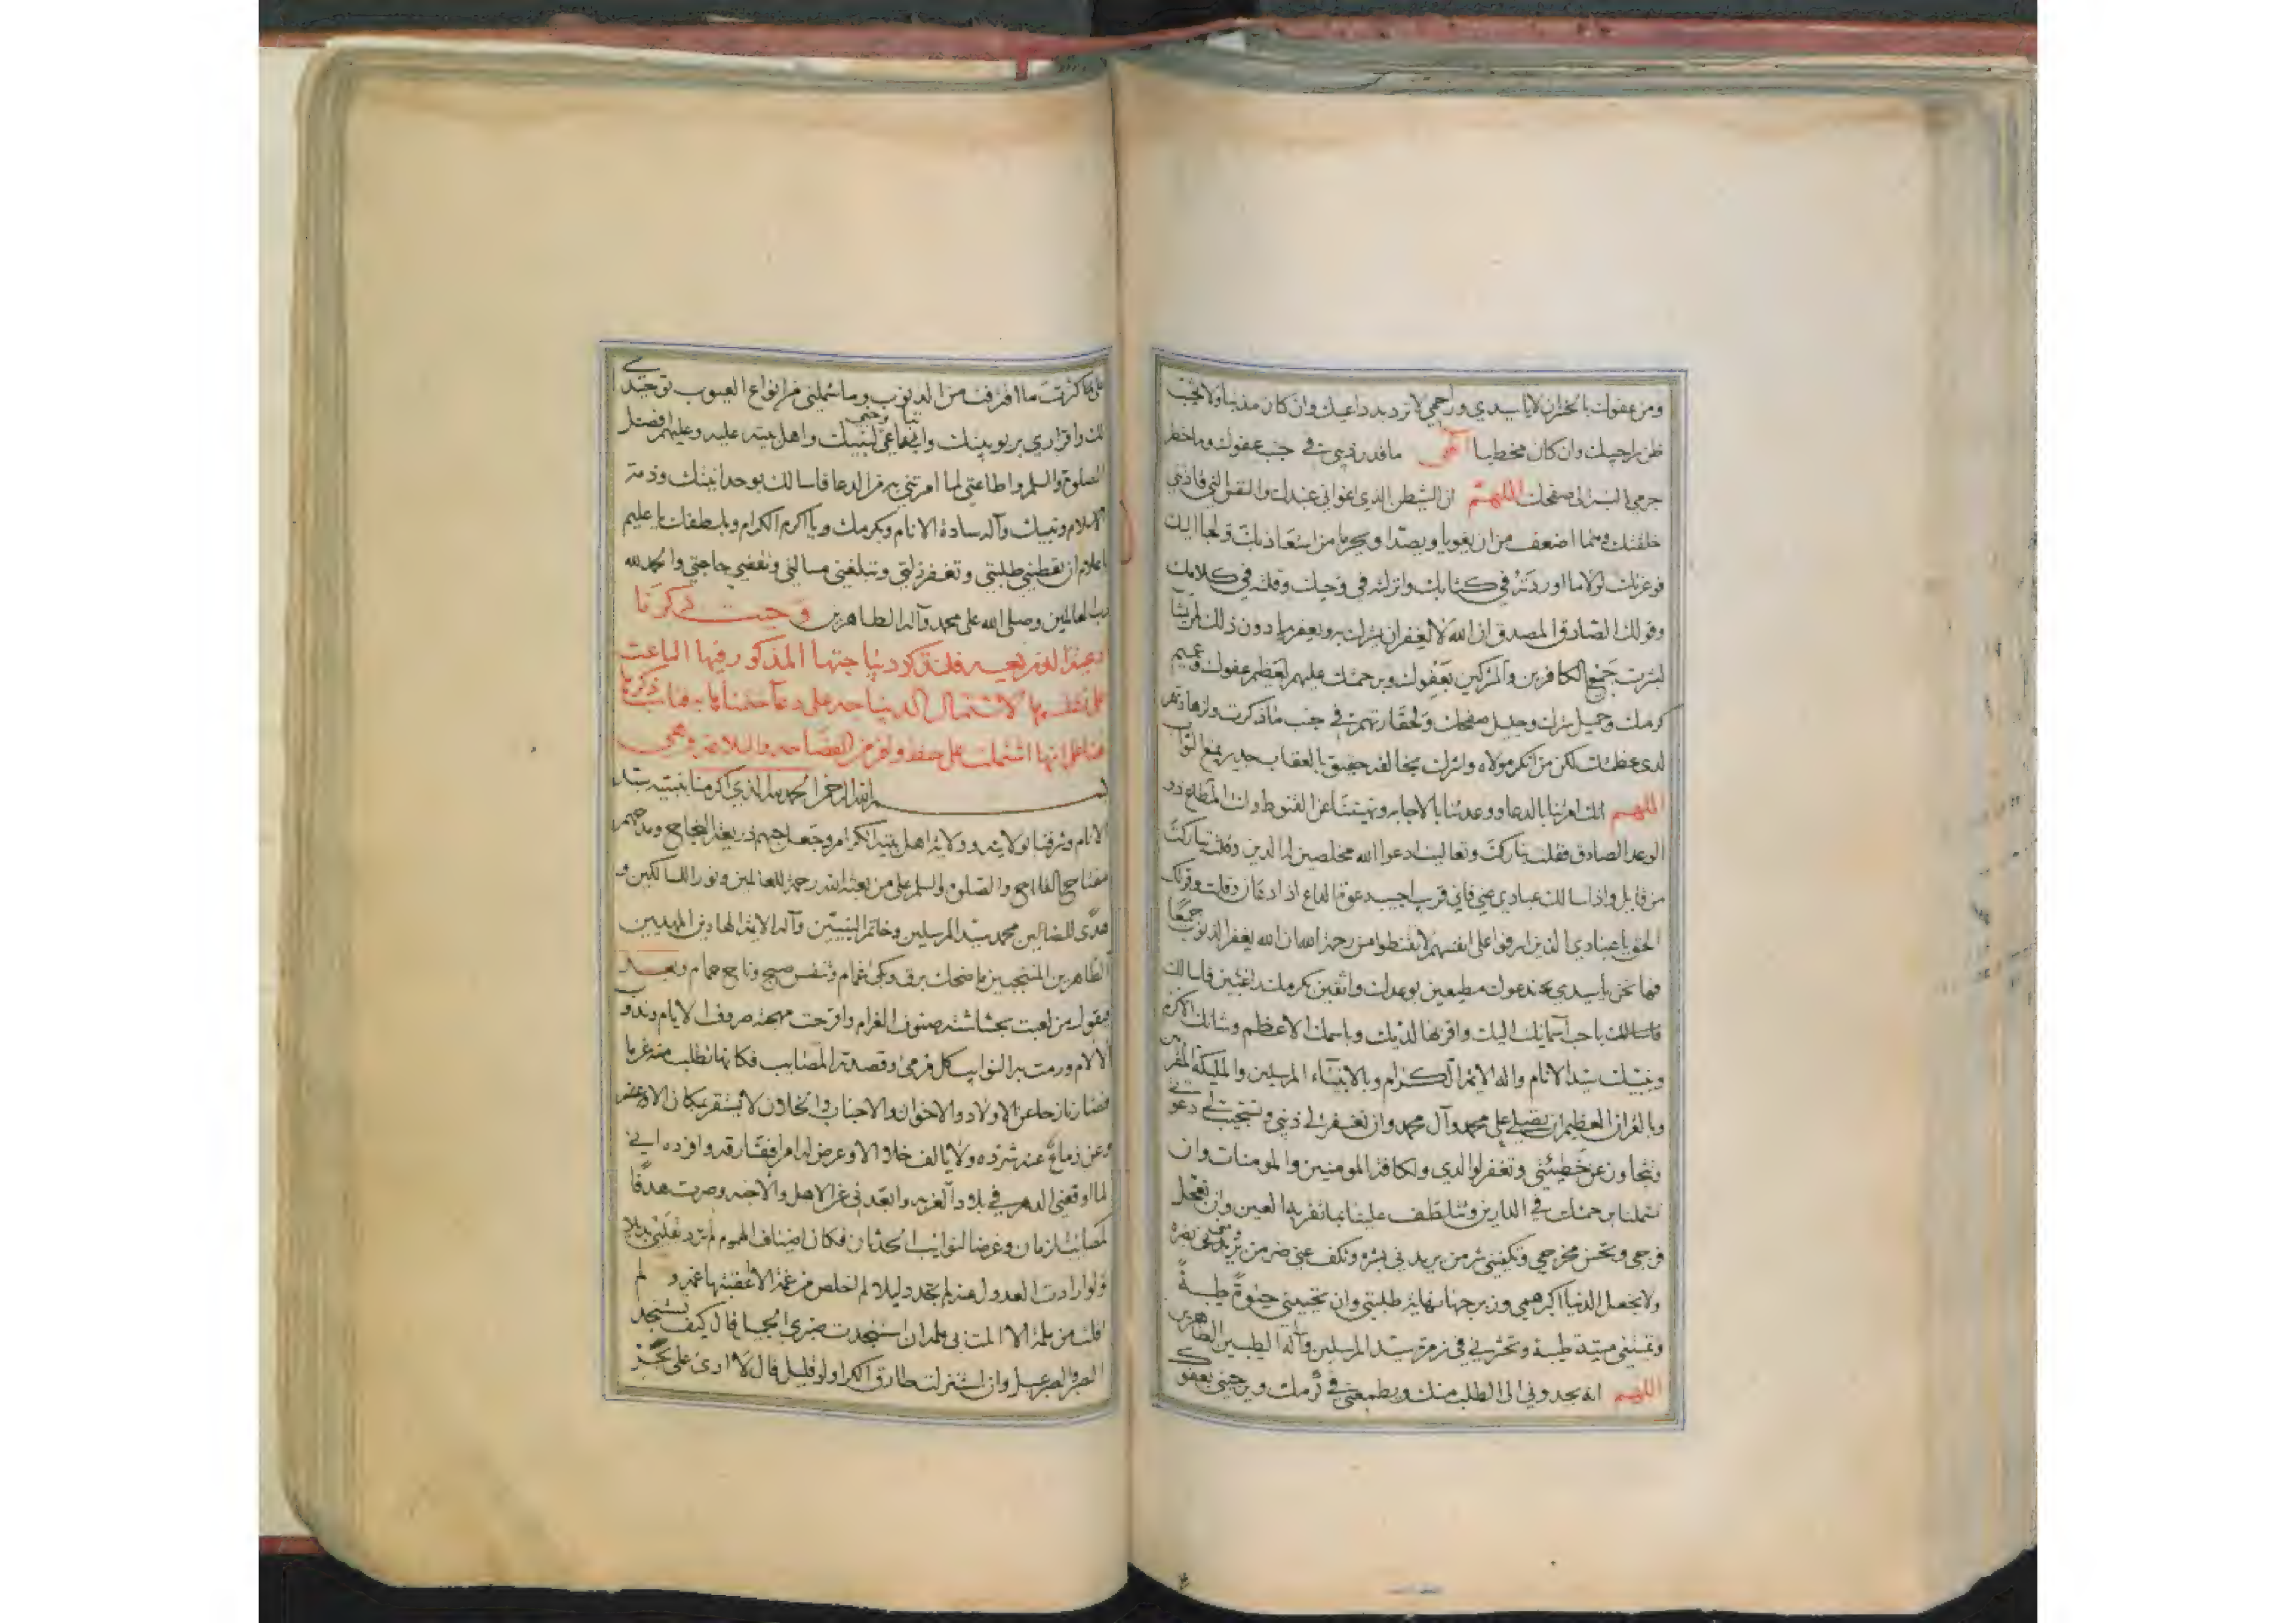 ومن عفوك بالخسران لا يا سيدي وراحمي لا ترد يد داعيك وان كان مذنبا ولا تخيب
ظن راجيك وان كان مخطيا الهي ما قدر ذنبي في جنب عفوك وما خطر
جرمي بالنسبة الى صفحك اللهم ان الشيطن الذي اغواني عبدك والنفس التي
خلقتك وهما اضعف من ان يغويا ويصدا ويحرما من استعاذ بك ولجا اليك
فوعزتك لولا ما اوردته في كتابك وانزلته في وحيك وقلته في كلامك
وقولك الصادق المصدق ان الله لا يغفر ان يشرك به ويغفر ما دون ذلك لمن يشا
لبشرت جميع الكافرين والمشركين بعفوك وبرحمتك عليهم لعظيم عفوك وعميم
كرمك وجميل سترك وجليل صفحك ولحقارتهم في جنب ما ذكرت
لدى عظمتك لكن من انكر مولاه واشرك بخالقه حقيق بالعقاب جدير بمنع الثواب
اللهم انك امرتنا بالدعا ووعدتنا بالاجابه ونهيتنا عن القنوط وانت
الوعد الصادق فقلت تباركت وتعاليت ادعوا الله مخلصين له الدين وقلت تباركت
من قايل واذا سالك عبادي عني فاني قريب اجيب دعوة الداع اذا دعان وقلت وقولك
الحق يا عبادي الذين اسرفوا على انفسهم لا تقنطوا من رحمة الله ان الله يغفر الذنوب جميعا
فها نحن يا سيدي ندعوك مطيعين بوعدك واثقين بكرمك راغبين فاسالك
فاسالك باحب اسمايك اليك واقربها لديك وباسمك الاعظم وشانك الاكرم
ونبيك سيد الانام واله الايمة الكرام وبالانبياء المرسلين والمليكة المقربين
وبالقران العظيم ان تصلي على محمد وآل محمد وان تغفر لي ذنبي وتستجيب لي دعوتي
وتتجاوز عن خطيئتي وتغفر لوالدي ولكافة المومنين والمومنات وان
تشملنا برحمتك في الدارين وتتلطف علينا بما تقر به العين وان تعجل
فرجي وتحسن مخرجي وتكفيني شر من يريدني بشره وتكف عني ضر من يريدني بضره
ولا تجعل الدنيا اكبر همي وزبرجها نهاية طلبتي وان تحييني حيوة طيبة
وتميتني ميتة طيبة وتحشرني في زمرة سيد المرسلين وآله الطيبين الطاهرين
اللهم انه يحدوني الى الطلب منك ويطمعني في كرمك ويرجيني بعفوك
على كثرت ما اقترفت من الذنوب وما شملني من انواع العيوب توحيدي
لك واقراري بربوبيتك واتباعي لنبيك واهل بيته عليه وعليهم افضل
الصلوة والسلم واطاعتي لما امرتني به من الدعا فاسالك بوحدانيتك وذمة
الاسلام ونبيك وآله سادة الانام وبكرمك ويا اكرم الكرام وبلطفك يا عليم
يا علام ان تعطيني طلبتي وتغفر زلتي وتبلغني مسالتي وتقضي حاجتي والحمد لله
رب العالمين وصلى الله على محمد وآله الطاهرين وحيث ذكرنا
فلنذكر ديباجتها المذكور فيها الباعث
على نظمها لاشتمال الديباجه على دعا ختمنا بها
على انها اشتملت على حظ وافر من الفصاحه والبلاغه وهي
بسم الله الرحمن الحمد لله الذي اكرمنا بنبيه سيد
الانام وشرفنا بولايته وولاية اهل بيته الكرام وجعل حبهم ذريعة النجاح ومدحهم
مفتاح الفلاح والصلوة والسلم على من بعثه الله رحمة للعالمين ونورا للسالكين و
هدى للضالين محمد سيد المرسلين وخاتم النبيين وآله الايمة الهادين المهديين
الطاهرين المنتجبين ما ضحك برق وبكى غمام وتنفس صبح وناح حمام وبعد
فيقول من لعبت بحشاشته صنوف الغرام واقرحت مهجته صروف الايام
الالام ورمت به النوايب كل مرمى وقصدته المصايب فكانها تطلب منه غرما
فصار نازحا عن الاولاد والاخوان والاحباب والخلان لا يستقر بمكان الا وعض
ولا يالف خلا الا وعرض له امر
لما اوقعني الدهر في بلاد الغربه وابعدني عن الاهل والاحبه وصرت هدفا
لمصايب الزمان وغرضا لنوايب الحدثان فكان اصناف الهموم لم ترد
ولو ارادت العدول عنه لم تجد دليلا لم اخلص من غمة الا اعقبتها غمة ولم
افلت من ملمة الا المت بي ملمة ان استنجدت صبري فقال كيف تستنجد